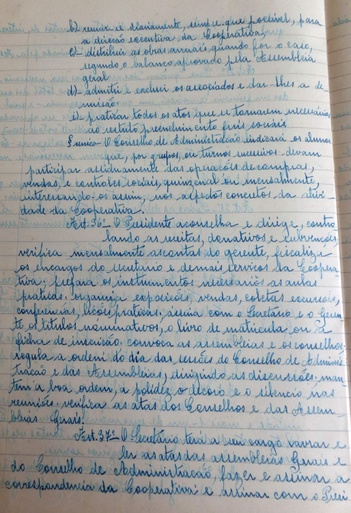 b) reunir-se diariamente, sempre que possível, para
a direção executiva da Cooperativa;
c) distribuir as sobras anuais, quando for o caso,
segundo o balanço aprovado pela Assembleia
geral
d) admitir e excluir os associados e dar-lhes a de
missão
e) praticar todos os atos que se tornarem necessários
ao restrito preenchimento fins sociais
§ único - O Conselho de Administração indicará os alunos
que, por grupos, ou turnos sucessivos, devam
participar assiduamente das operações de compras,
vendas, e conhões sociais, quinzenal ou mensalmente,
interessando-os assim, nos aspectos concretos da ativi
dade da Cooperativa.
Art. 36º O Presidente aconselha e dirige, contro
lando as receitas, donativos e subvenções
verifica mensalmente as contas do gerente, fiscaliza
os encargos do secretário e demais serviços da Coopera
tiva, prepara os instrumentos necessários as aulas
práticas. organiza exposições, vendas, coletas excursões,
conferências, lições práticas. assina com o Secretário e o Geren
te, os titulos nominativos, o livro de matricula ou a
ficha de inscrisão, convoca as assembleias e os conselhos
regula a ordem do dia das sessões do Conselho de Adminis
tração e das Assembleias, dirigindo as discussões. man
tem a boa ordem, a polidez o decoro e o silencio nas
reuniões, verifica as atas dos Conselhos e das Assem
bléias Gerais.
Art. 37º O Secretário terá a seu cargo lavrar e
ler as atas das assembleias Gerais e
do Conselho de Administração, fazer e assinar a
correspondencia da Cooperativa e assinar com o Presi